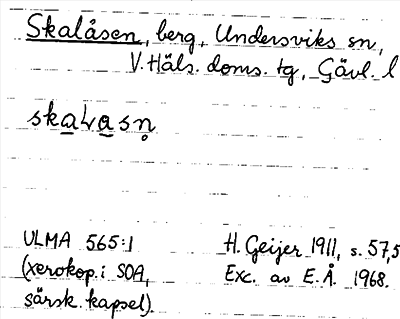 Skalåsen, berg, Undersviks sn,
V. Häls. doms. tg, Gävl. l
ska̲ɬa̲sn̥
ULMA 565:1 H. Geijer 1911, s. 57,5
(xerokop. i SOA, Exc. av E.Å. 1968.
särsk. kapsel).